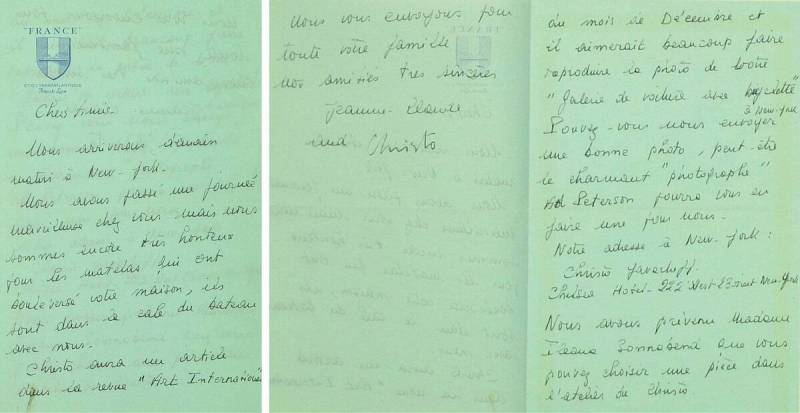 "FRANCE"
Cie Gle TRANSATLANTIQUE
French Line
Chers Amis.
Nous arriverons demain
matin à New-York.
Nous avons passé une journée
merveilleuse chez vous mais nous
sommes encore très honteux
pour les matelas qui ont
bouleversé votre maison, ils
sont dans la cale du bateau
avec nous.
Christo aura un article
dans la revue "Art International"
du mois de Décembre et
il aimerait beaucoup faire
reproduire la photo de votre
"Galerie de voiture avec bicyclette"
à New-York
Pouvez-vous nous envoyer
une bonne photo, peut-être
le charmant "photographe"
Ad Peterson pourra vous en
faire une pour nous.
Notre adresse à New-York :
Christo Javacheff.
Chelsea Hotel - 222 West 23 street New-York
Nous avons prévenu Madame
Ileana Sonnabend que vous
pouvez choisir une pièce dans
l'atelier de Christo.
Nous vous envoyons pour
toute votre famille
nos amitiés très sincères
Jeanne-Claude
and Christo